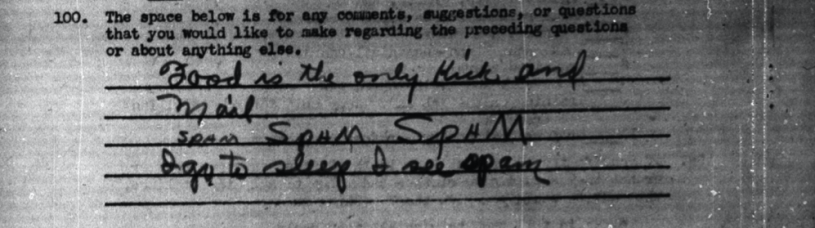 100. The space below is for any comments, suggestions, or questions
that you would like to make regarding the preceding questions
or about anything else.
Food is the only Kick and
Mail
SPAM SPAM SPAM
I go to sleep I see spam